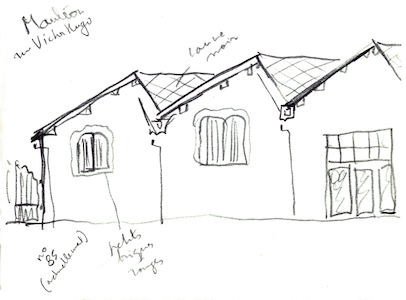 Mauléon
rue Victor Hugo
noir
no
85
(actuellement)
petits
briques
rouges